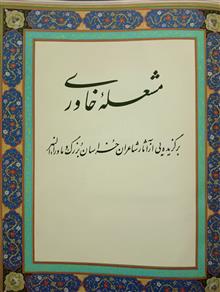 مشعلهٔ خاوری
برگزیده‌یی از آثار شاعران خراسان بزرگ و ماوراءالنهر